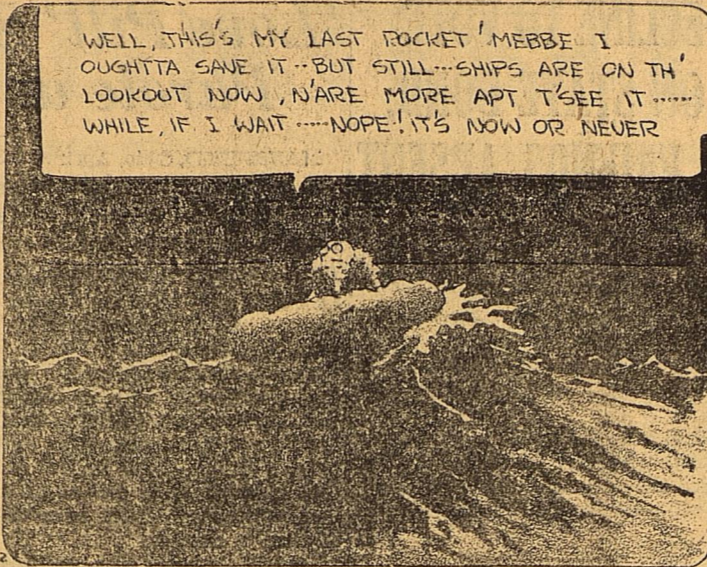 WELL, THIS'S MY LAST ROCKET! MEBBE I
OUGHTTA SAVE IT··BUT STILL···SHIPS ARE ON TH'
LOOKOUT NOW, N'ARE MORE APT T'SEE IT······
WHILE, IF I WAIT ·····NOPE! IT'S NOW OR NEVER